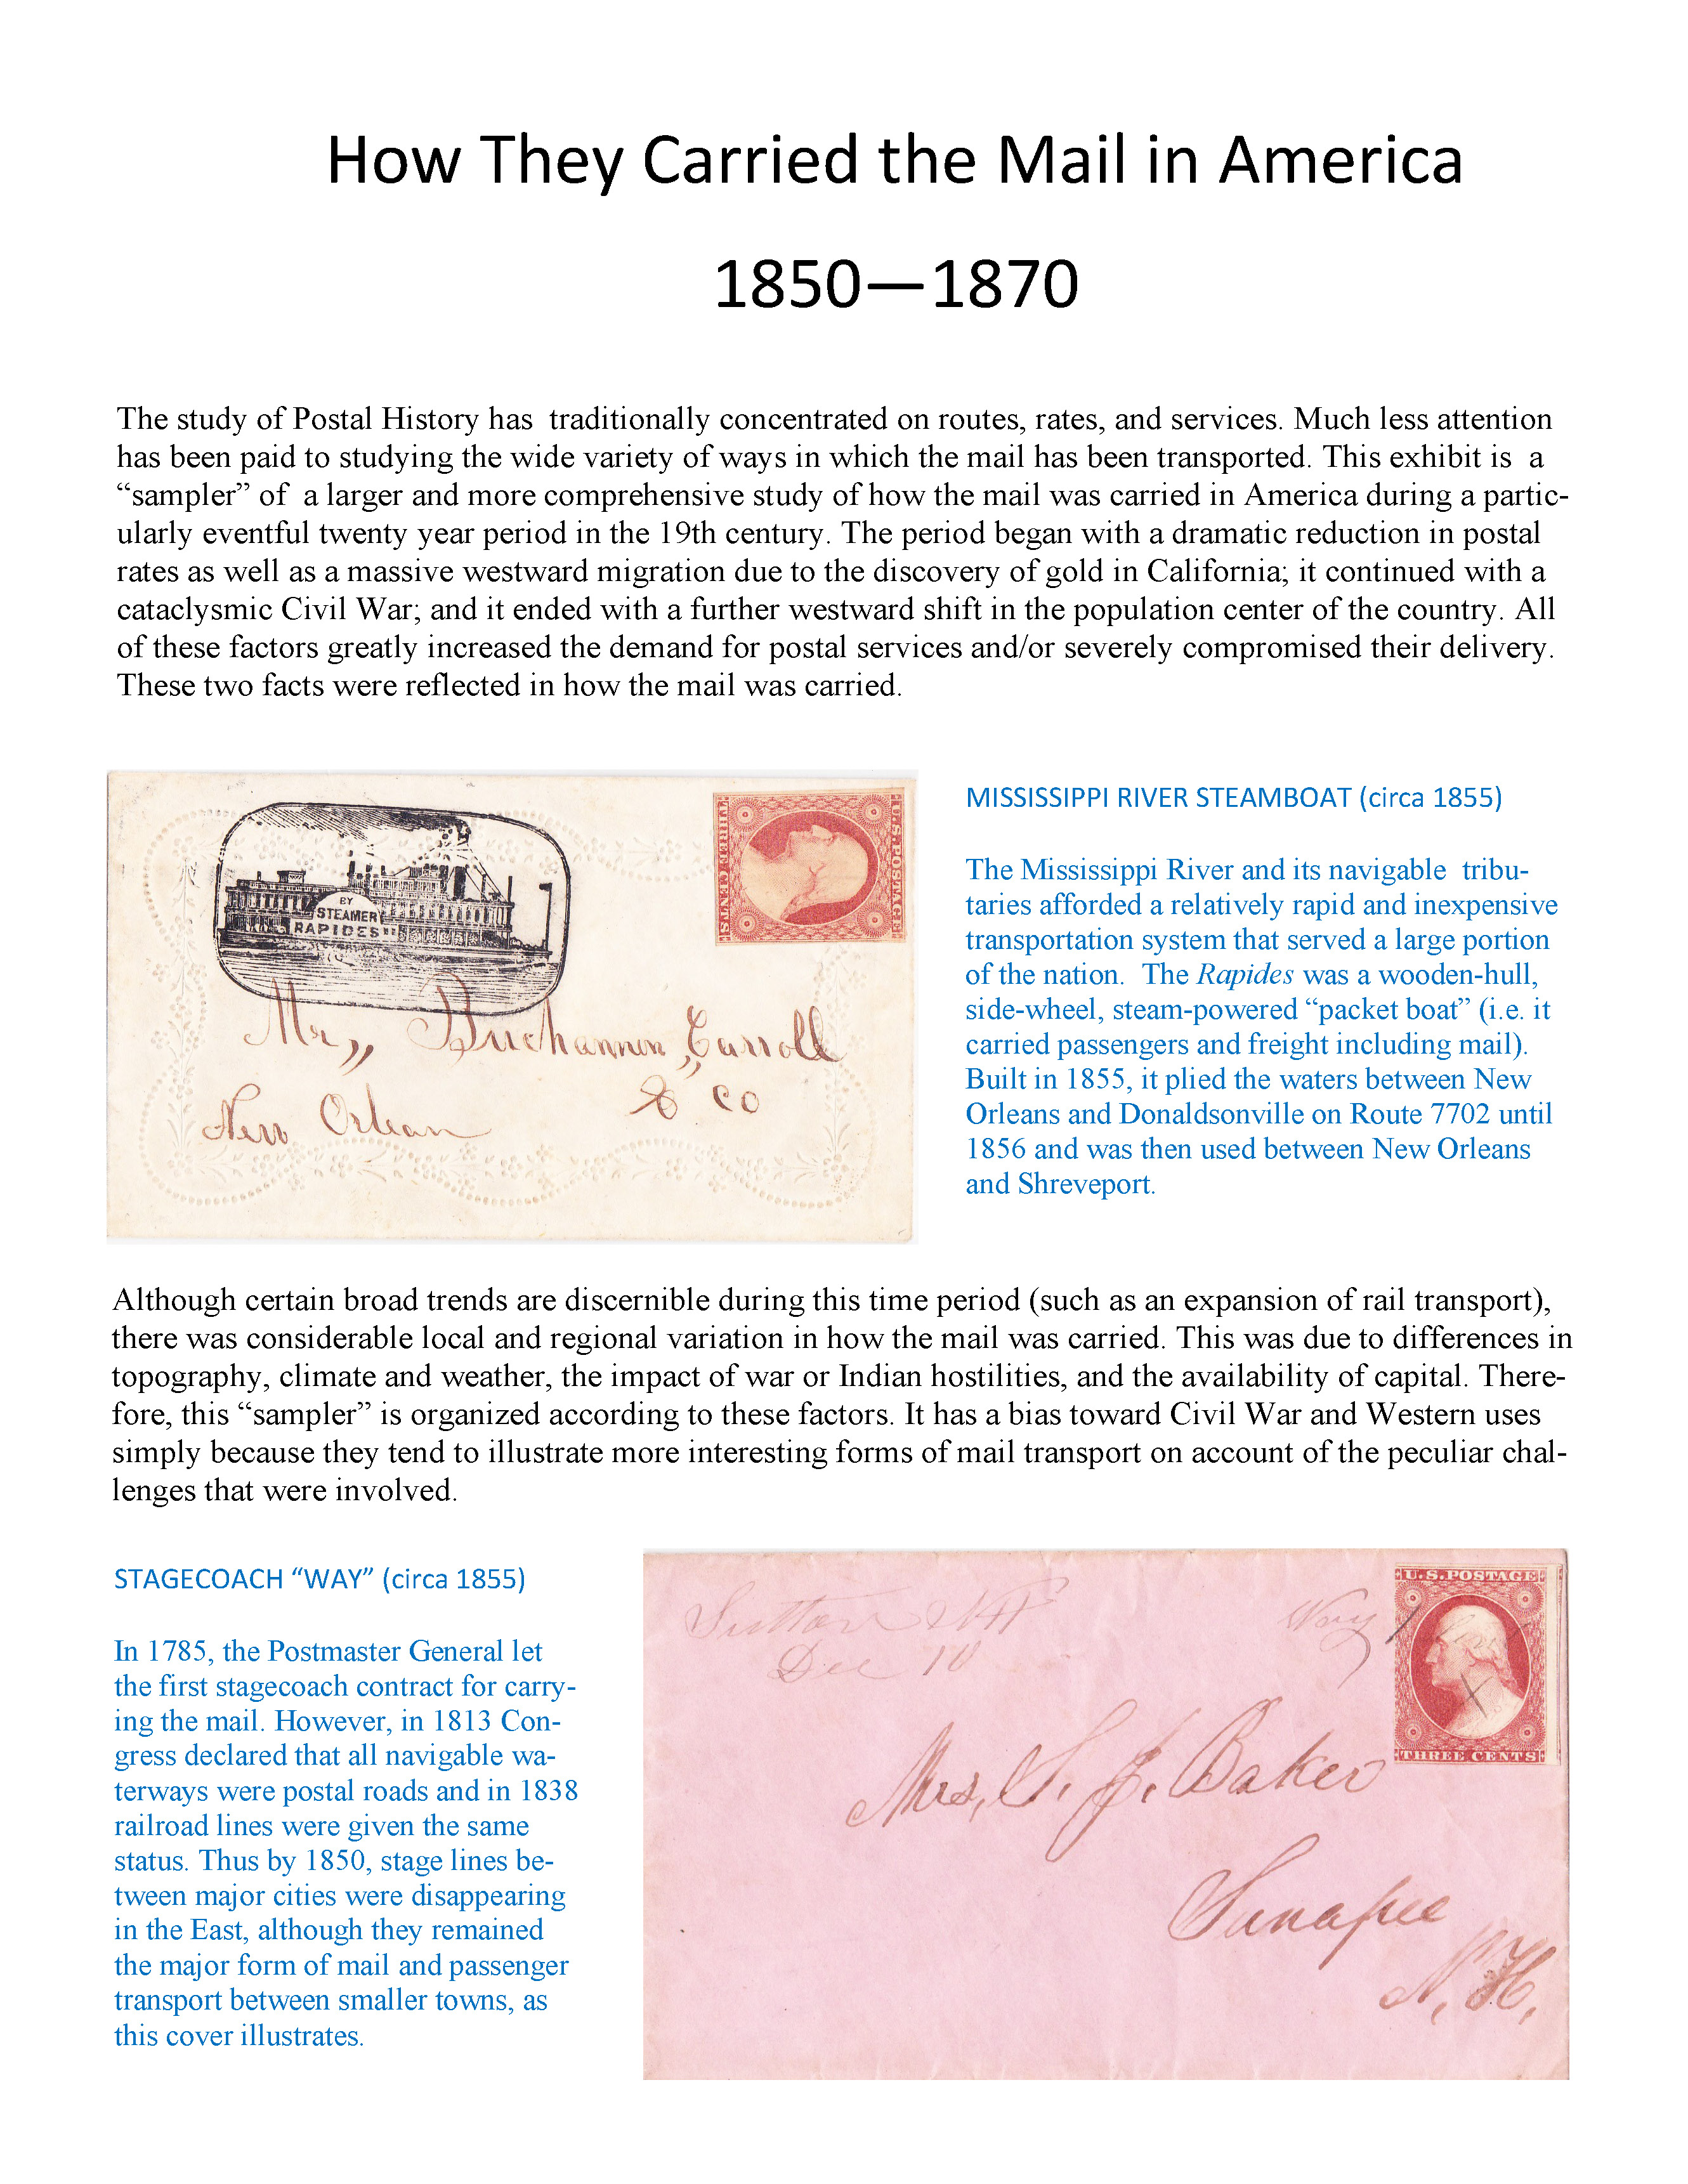 How They Carried the Mail in America
1850—1870
The study of Postal History has  traditionally concentrated on routes, rates, and services. Much less attention
has been paid to studying the wide variety of ways in which the mail has been transported. This exhibit is  a
“sampler” of  a larger and more comprehensive study of how the mail was carried in America during a partic-
ularly eventful twenty year period in the 19th century. The period began with a dramatic reduction in postal
rates as well as a massive westward migration due to the discovery of gold in California; it continued with a
cataclysmic Civil War; and it ended with a further westward shift in the population center of the country. All
of these factors greatly increased the demand for postal services and/or severely compromised their delivery.
These two facts were reflected in how the mail was carried.
BY
STEAMER
RAPIDES
U.S. POSTAGE
THREE CENTS
Mr,, Buchannon, Carroll
& Co
New Orlean
MISSISSIPPI RIVER STEAMBOAT (circa 1855)
The Mississippi River and its navigable  tribu-
taries afforded a relatively rapid and inexpensive
transportation system that served a large portion
of the nation.  The Rapides was a wooden-hull,
side-wheel, steam-powered “packet boat” (i.e. it
carried passengers and freight including mail).
Built in 1855, it plied the waters between New
Orleans and Donaldsonville on Route 7702 until
1856 and was then used between New Orleans
and Shreveport.
Although certain broad trends are discernible during this time period (such as an expansion of rail transport),
there was considerable local and regional variation in how the mail was carried. This was due to differences in
topography, climate and weather, the impact of war or Indian hostilities, and the availability of capital. There-
fore, this “sampler” is organized according to these factors. It has a bias toward Civil War and Western uses
simply because they tend to illustrate more interesting forms of mail transport on account of the peculiar chal-
lenges that were involved.
STAGECOACH “WAY” (circa 1855)
In 1785, the Postmaster General let
the first stagecoach contract for carry-
ing the mail. However, in 1813 Con-
gress declared that all navigable wa-
terways were postal roads and in 1838
railroad lines were given the same
status. Thus by 1850, stage lines be-
tween major cities were disappearing
in the East, although they remained
the major form of mail and passenger
transport between smaller towns, as
this cover illustrates.
Sutton NH
Dec 10
Way 1
U.S. POSTAGE
THREE CENTS
Mrs, S. J. Baker
Sunapee
N, H,